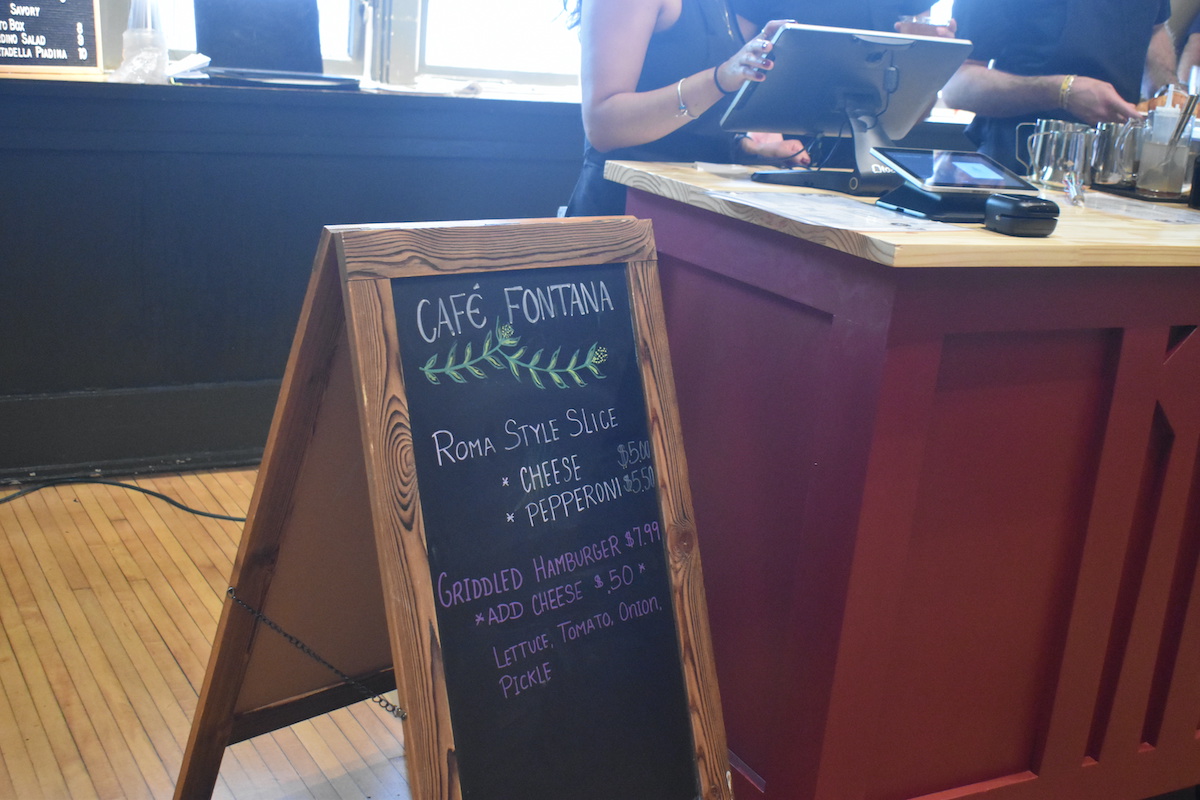 SAVORY
BOX 8
SALAD 9
PIADINA 10
CAFÉ FONTANA
ROMA STYLE SLICE
* CHEESE $5.00
* PEPPERONI $5.50
GRIDDLED HAMBURGER $7.99
*ADD CHEESE $.50*
LETTUCE, TOMATO, ONION,
PICKLE